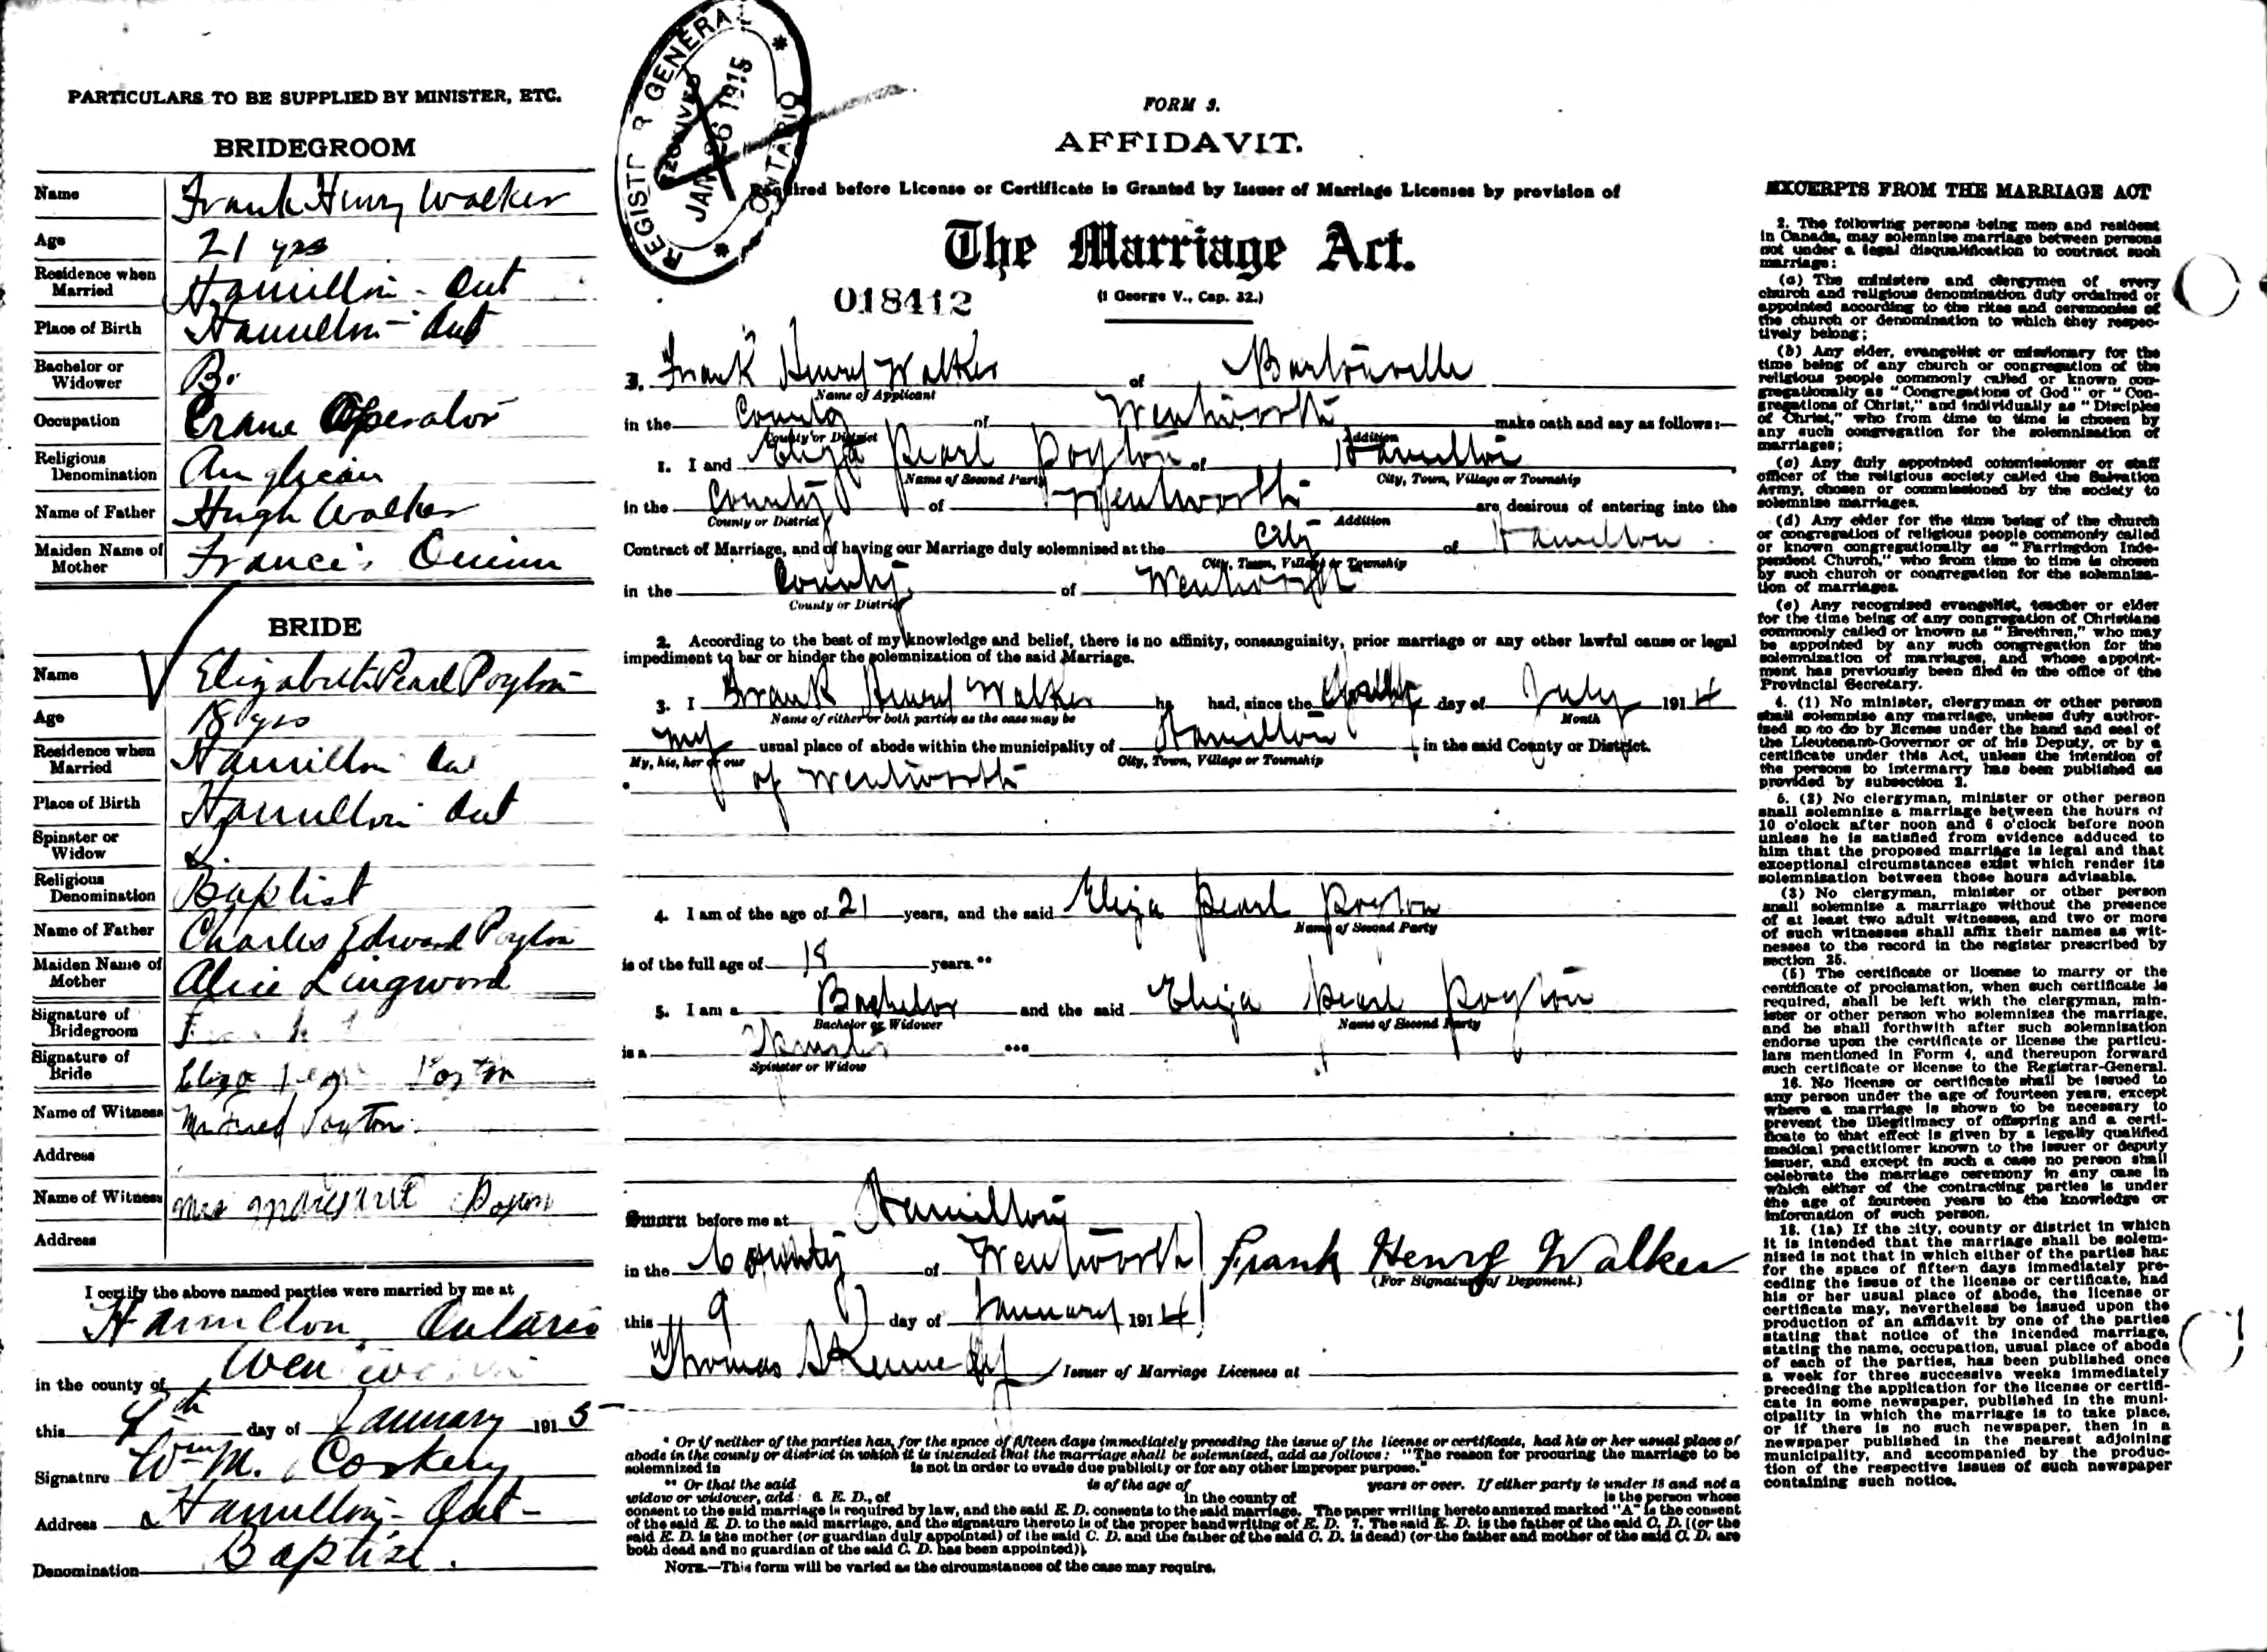 PARTICULARS TO BE SUPPLIED BY MINISTER, ETC.
BRIDEGROOM
Name Frank Henry Walker
Age 21 yrs
Residence when Married Hamilton - Ont
Place of Birth Hamilton - Ont
Bachelor or Widower B.
Occupation Crane Operator
Religious Denomination Anglican
Name of Father Hugh Walker
Maiden Name of Mother Francis Quinn
BRIDE
Name Elizabeth Pearl Poyton
Age 18 yrs
Residence when Married Hamilton Ont
Place of Birth Hamilton Ont
Spinster or Widow S.
Religious Denomination Baptist
Name of Father Charles Edward Poyton
Maiden Name of Mother Alice Lingwood
Signature of Bridegroom
Signature of Bride Eliza Poyton
Name of Witness Mildred Poyton.
Address
Name of Witness Mrs Margaret Poyton
Address
I certify the above named parties were married by me at
Hamilton, Ontario
in the county of
this day of January 1915
Signature Wm M.
Address Hamilton - Ont -
Denomination Baptist.
REGISTRAR GENERAL
RECEIVED
JAN 1915
ONTARIO
FORM 3.
AFFIDAVIT.
Required before License or Certificate is Granted by Issuer of Marriage Licenses by provision of
The Marriage Act.
018412
(1 George V., Cap. 32.)
3. Frank Henry Walker of Bartonville
Name of Applicant
in the County of Wentworth make oath and say as follows:—
County or District Addition
1. I and Eliza Pearl Poyton of Hamilton
Name of Second Party City, Town, Village or Township
in the County of Wentworth are desirous of entering into the
County or District Addition
Contract of Marriage, and of having our Marriage duly solemnized at the City of Hamilton
City, Town, Village or Township
in the County of Wentworth
County or District
2. According to the best of my knowledge and belief, there is no affinity, consanguinity, prior marriage or any other lawful cause or legal
impediment to bar or hinder the solemnization of the said Marriage.
3. I Frank Henry Walker ha had, since the day of July 1914
Name of either or both parties as the case may be Month
my usual place of abode within the municipality of Hamilton in the said County or District.
My, his, her or our City, Town, Village or Township
of Wentworth
4. I am of the age of 21 years, and the said Eliza Pearl Poyton
Name of Second Party
is of the full age of 18 years.**
5. I am a Bachelor and the said Eliza Pearl Poyton
Bachelor or Widower Name of Second Party
is a Spinster ***
Spinster or Widow
Sworn before me at Hamilton
in the County of Wentworth Frank Henry Walker
(For Signature of Deponent.)
this 9 day of January 1914
Thomas S Kennedy Issuer of Marriage Licenses at
* Or if neither of the parties has, for the space of fifteen days immediately preceding the issue of the license or certificate, had his or her usual place of
abode in the county or district in which it is intended that the marriage shall be solemnized, add as follows: "The reason for procuring the marriage to be
solemnized in is not in order to evade due publicity or for any other improper purpose."
** Or that the said is of the age of years or over. If either party is under 18 and not a
widow or widower, add: 6. E. D., of in the county of is the person whose
consent to the said marriage is required by law, and the said E. D. consents to the said marriage. The paper writing hereto annexed marked "A" is the consent
of the said E. D. to the said marriage, and the signature thereto is of the proper handwriting of E. D. 7. The said E. D. is the father of the said C. D. (or the
said E. D. is the mother (or guardian duly appointed) of the said C. D. and the father of the said C. D. is dead) (or the father and mother of the said C. D. are
both dead and no guardian of the said C. D. has been appointed)).
NOTE.—This form will be varied as the circumstances of the case may require.
EXCERPTS FROM THE MARRIAGE ACT
2. The following persons being men and resident
in Canada, may solemnise marriage between persons
not under a legal disqualification to contract such
marriage:
(a) The ministers and clergymen of every
church and religious denomination duly ordained or
appointed according to the rites and ceremonies of
the church or denomination to which they respec-
tively belong;
(b) Any elder, evangelist or missionary for the
time being of any church or congregation of the
religious people commonly called or known con-
gregationally as "Congregations of God" or "Con-
gregations of Christ," and individually as "Disciples
of Christ," who from time to time is chosen by
any such congregation for the solemnization of
marriages;
(c) Any duly appointed commissioner or staff
officer of the religious society called the Salvation
Army, chosen or commissioned by the society to
solemnise marriages.
(d) Any elder for the time being of the church
or congregation of religious people commonly called
or known congregationally as "Farringdon Inde-
pendent Church," who from time to time is chosen
by such church or congregation for the solemniza-
tion of marriages.
(e) Any recognised evangelist, teacher or elder
for the time being of any congregation of Christians
commonly called or known as "Brethren," who may
be appointed by any such congregation for the
solemnization of marriages, and whose appoint-
ment has previously been filed in the office of the
Provincial Secretary.
4. (1) No minister, clergyman or other person
shall solemnize any marriage, unless duly author-
ised so to do by license under the hand and seal of
the Lieutenant-Governor or of his Deputy, or by a
certificate under this Act, unless the intention of
the persons to intermarry has been published as
provided by subsection 2.
5. (2) No clergyman, minister or other person
shall solemnize a marriage between the hours of
10 o'clock after noon and 6 o'clock before noon
unless he is satisfied from evidence adduced to
him that the proposed marriage is legal and that
exceptional circumstances exist which render its
solemnisation between those hours advisable.
(3) No clergyman, minister or other person
shall solemnize a marriage without the presence
of at least two adult witnesses, and two or more
of such witnesses shall affix their names as wit-
nesses to the record in the register prescribed by
section 25.
(5) The certificate or license to marry or the
certificate of proclamation, when such certificate is
required, shall be left with the clergyman, min-
ister or other person who solemnizes the marriage,
and he shall forthwith after such solemnisation
endorse upon the certificate or license the particu-
lars mentioned in Form 4, and thereupon forward
such certificate or license to the Registrar-General.
16. No license or certificate shall be issued to
any person under the age of fourteen years, except
where a marriage is shown to be necessary to
prevent the illegitimacy of offspring and a certi-
ficate to that effect is given by a legally qualified
medical practitioner known to the issuer or deputy
issuer, and except in such a case no person shall
celebrate the marriage ceremony in any case in
which either of the contracting parties is under
the age of fourteen years to the knowledge or
information of such person.
18. (1a) If the city, county or district in which
it is intended that the marriage shall be solem-
nized is not that in which either of the parties has
for the space of fiftern days immediately pre-
ceding the issue of the license or certificate, had
his or her usual place of abode, the license or
certificate may, nevertheless be issued upon the
production of an affidavit by one of the parties
stating that notice of the intended marriage,
stating the name, occupation, usual place of abode
of each of the parties, has been published once
a week for three successive weeks immediately
preceding the application for the license or certifi-
cate in some newspaper, published in the muni-
cipality in which the marriage is to take place,
or if there is no such newspaper, then in a
newspaper published in the nearest adjoining
municipality, and accompanied by the produc-
tion of the respective issues of such newspaper
containing such notice.